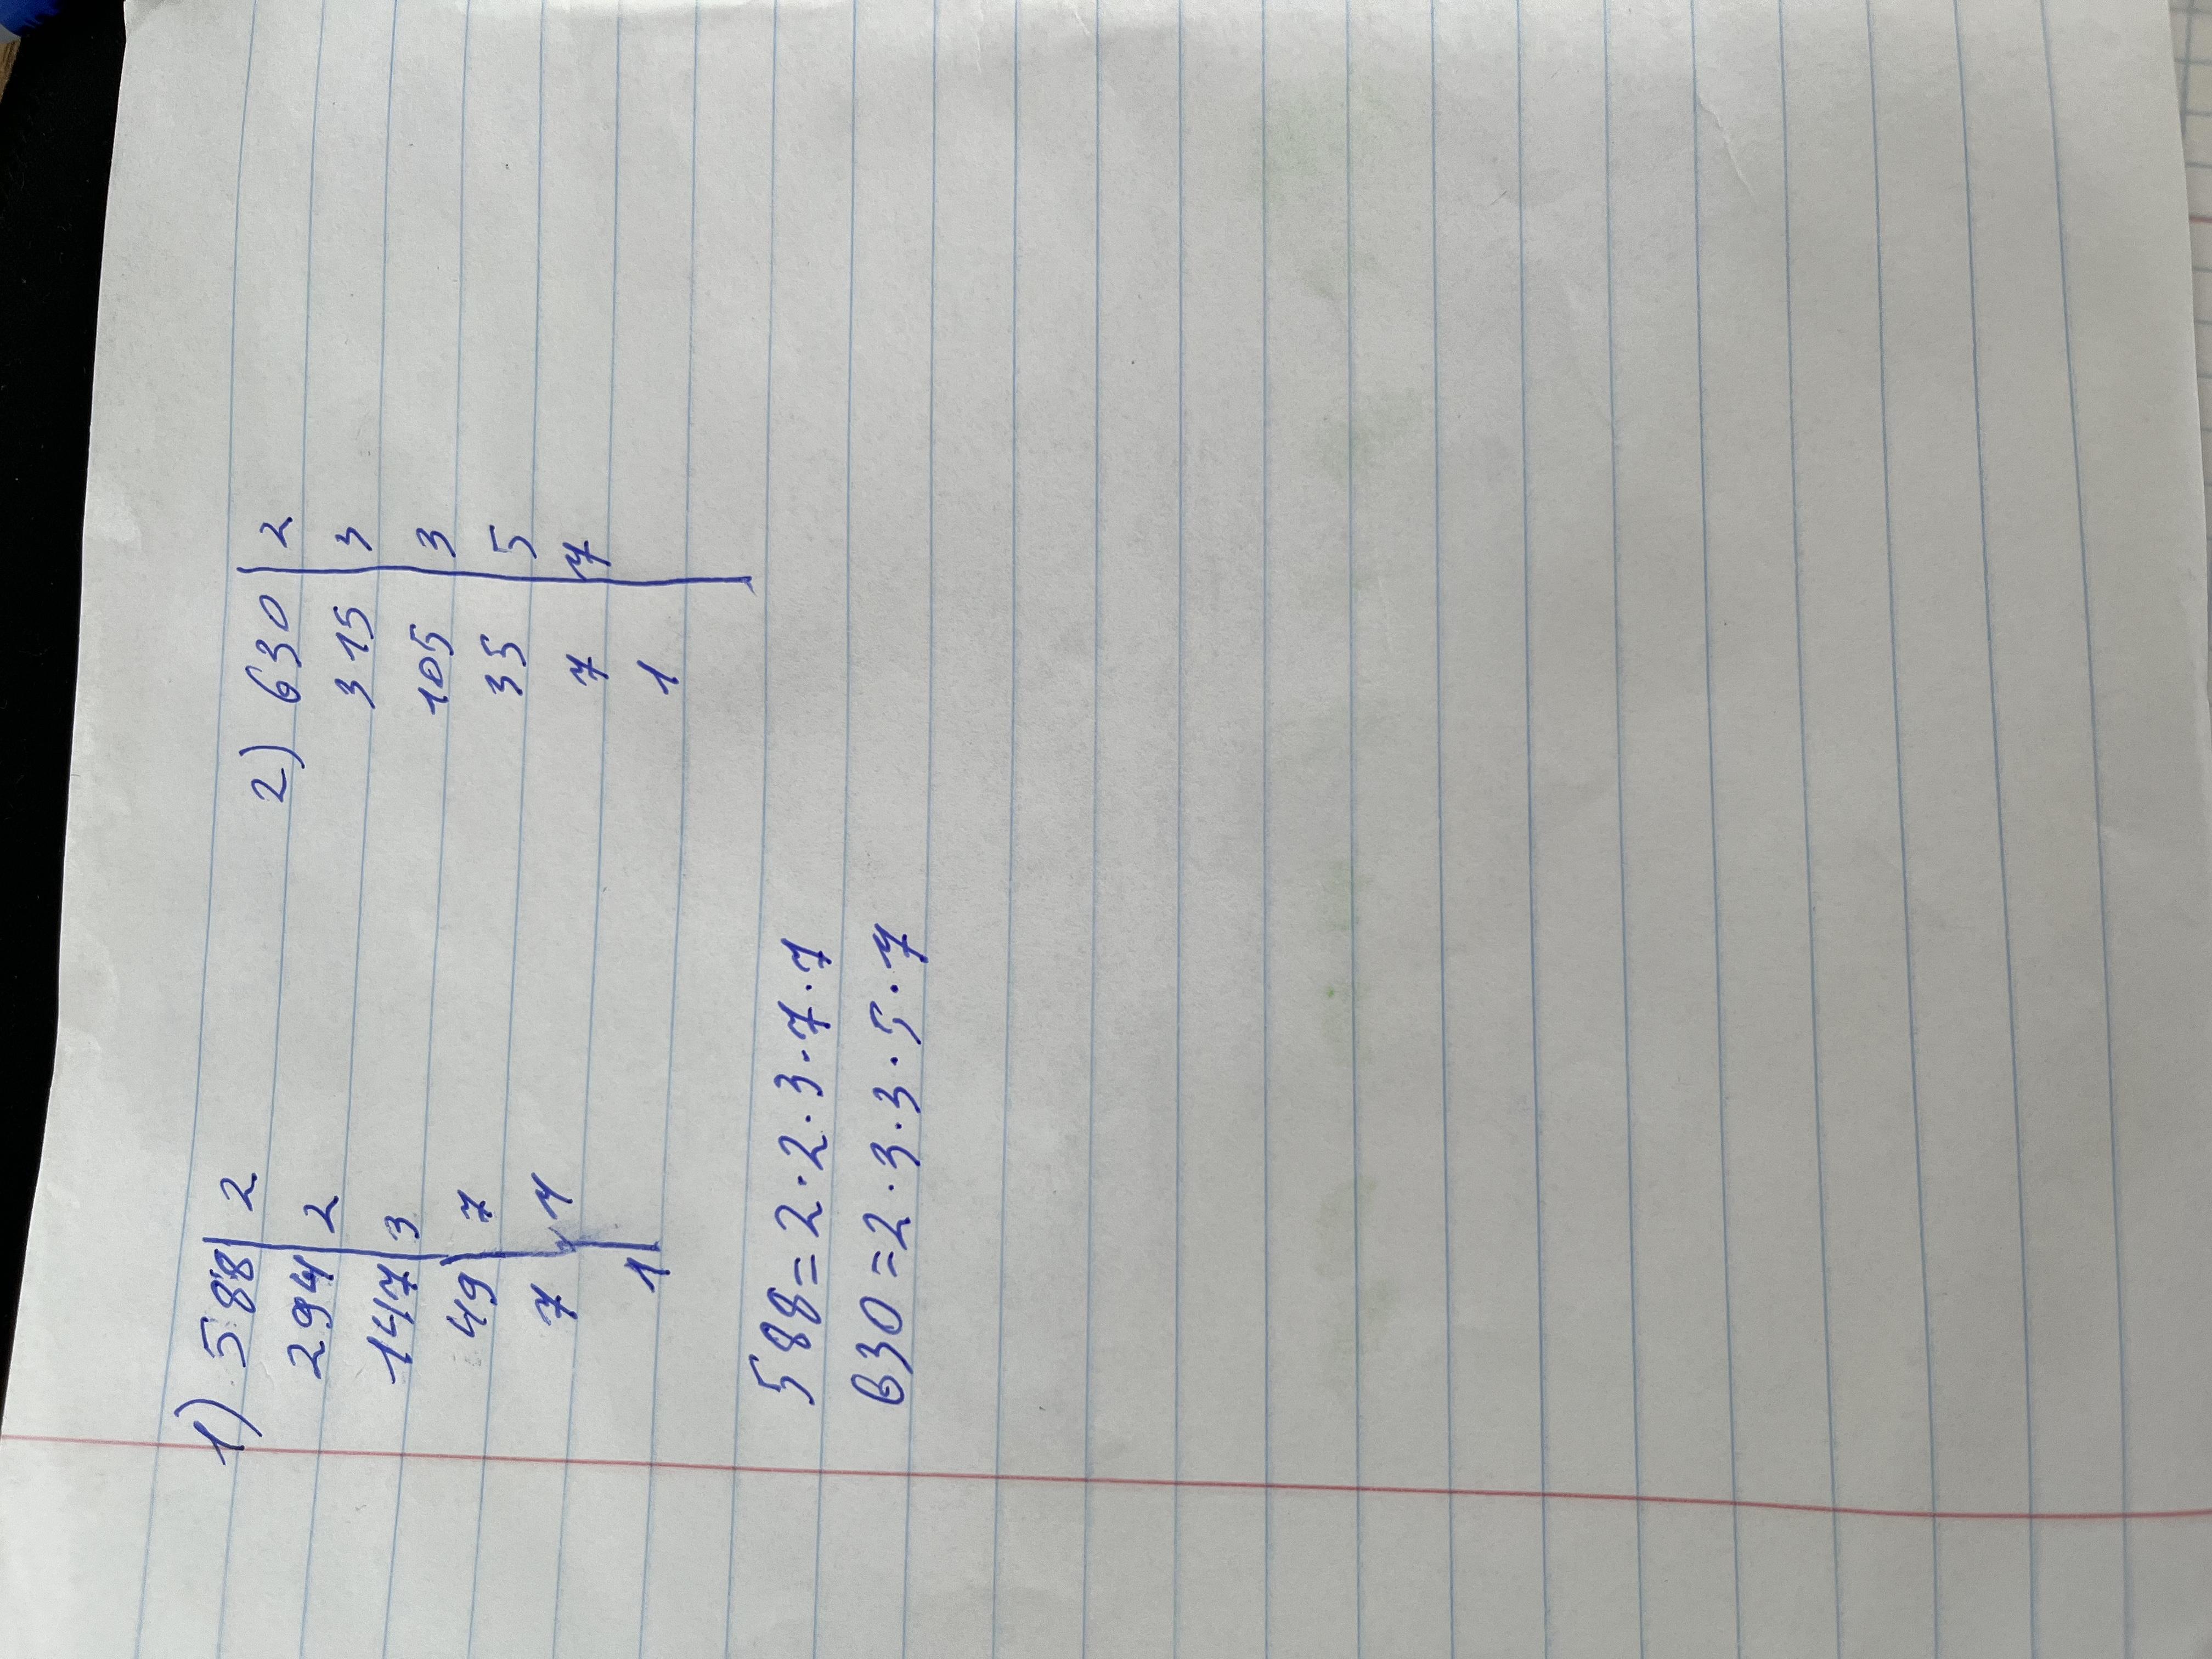 1) 588 | 2 2) 630 | 2
294 | 2 315 | 3
147 | 3 105 | 3
49 | 7 35 | 5
7 | 7 7 | 7
1 1
588=2·2·3·7·7
630=2·3·3·5·7